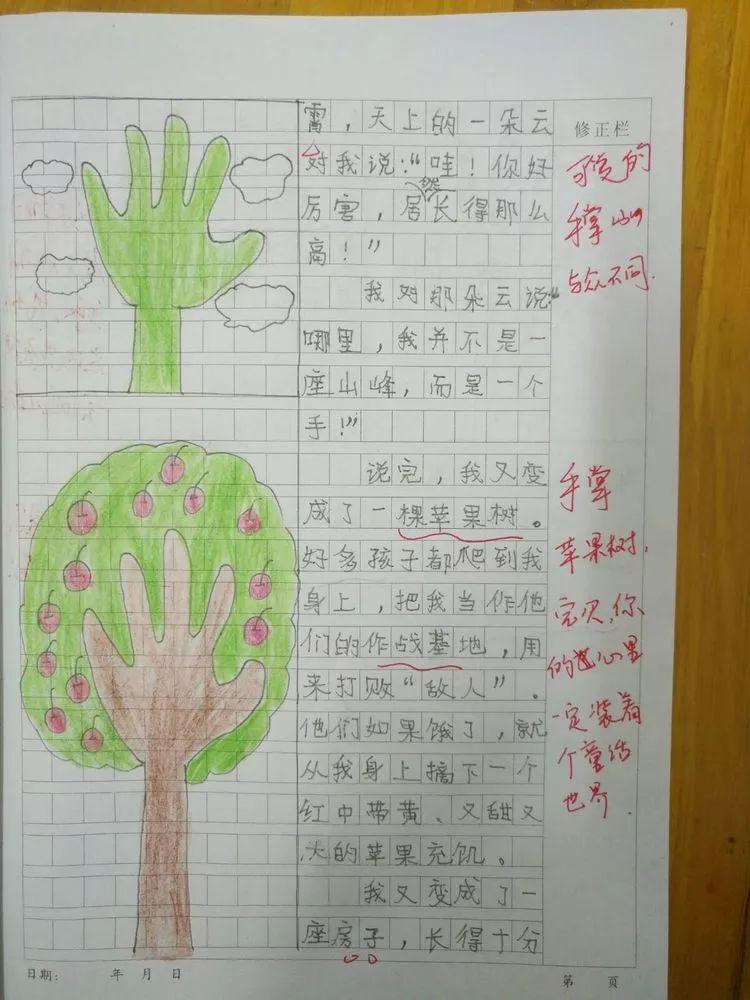 霄，天上的一朵云
对我说："哇！你好
厉害，居然长得那么
高！"
我对那朵云说："
哪里，我并不是一
座山峰，而是一个
手！"
说完，我又变
成了一棵苹果树。
好多孩子都爬到我
身上，把我当作他
们的作战基地，用
来打败"敌人"。
他们如果饿了，就
从我身上摘下一个
红中带黄、又甜又
大的苹果充饥。
我又变成了一
座房子，长得十分
修正栏
可爱的
手掌山
与众不同.
手掌
苹果树，
宝贝，你
的心里
一定装着
个童话
世界.
日期： 年 月 日
第 页